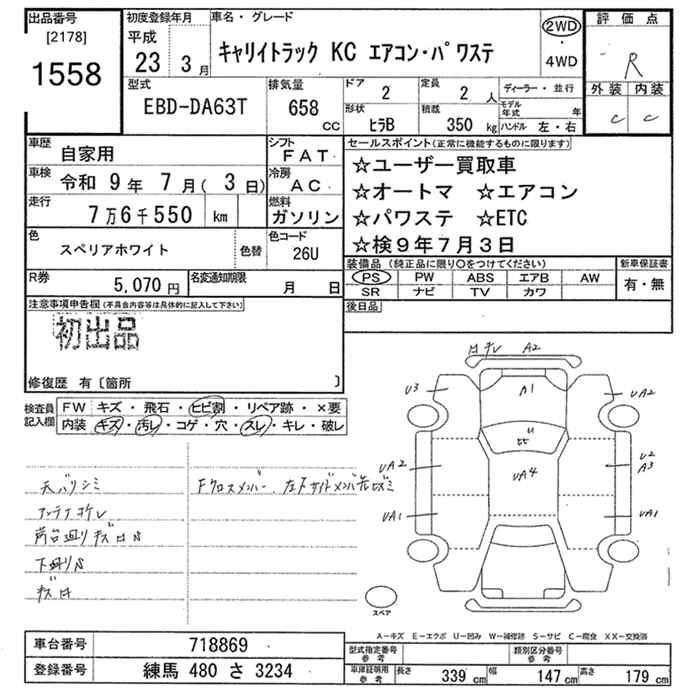 出品番号 初度登録年月 車名・グレード 評価点
[2178] 平成
1558 23 3月 キャリイトラック KC エアコン・パワステ 2WD・4WD R
型式 排気量 ドア 定員 ディーラー・並行 外装 内装
EBD-DA63T 658 CC 2 2人 モデル年式 年 C C
形状 積載
ヒラB 350 kg ハンドル 左・右
車歴 自家用 シフト FAT セールスポイント(正常に機能するものに限ります)
車検 令和 9年 7月(3日) 冷房 AC ☆ユーザー買取車
☆オートマ ☆エアコン
走行 7万6千550 km 燃料 ガソリン ☆パワステ ☆ETC
色 スペリアホワイト 色替 色コード 26U ☆検9年7月3日
装備品(純正品に限り〇をつけてください) 新車保証書
R券 5,070円 名変通知期限 月 日 PS PW ABS エアB AW 有・無
SR ナビ TV カワ
注意事項申告欄(不具合内容等は具体的に記入して下さい) 後日品
初出品
修復歴 有〔箇所 〕
検査員記入欄 FW キズ・飛石・ヒビ割・リペア跡・×要
内装 キズ・汚レ・コゲ・穴・スレ・キレ・破レ
A2
U3 A1 UA2
U
UA2 UA4 U2
A3
UA1 UA1
天バリシミ
下廻りS
スペア
A―キズ E―エクボ U―凹み W―補修跡 S―サビ C―腐食 XX―交換済
車台番号 718869 型式指定番号 参考 類別区分番号 参考
登録番号 練馬 480 さ 3234 車庫証明用 参考 長さ 339 cm 幅 147 cm 高さ 179 cm